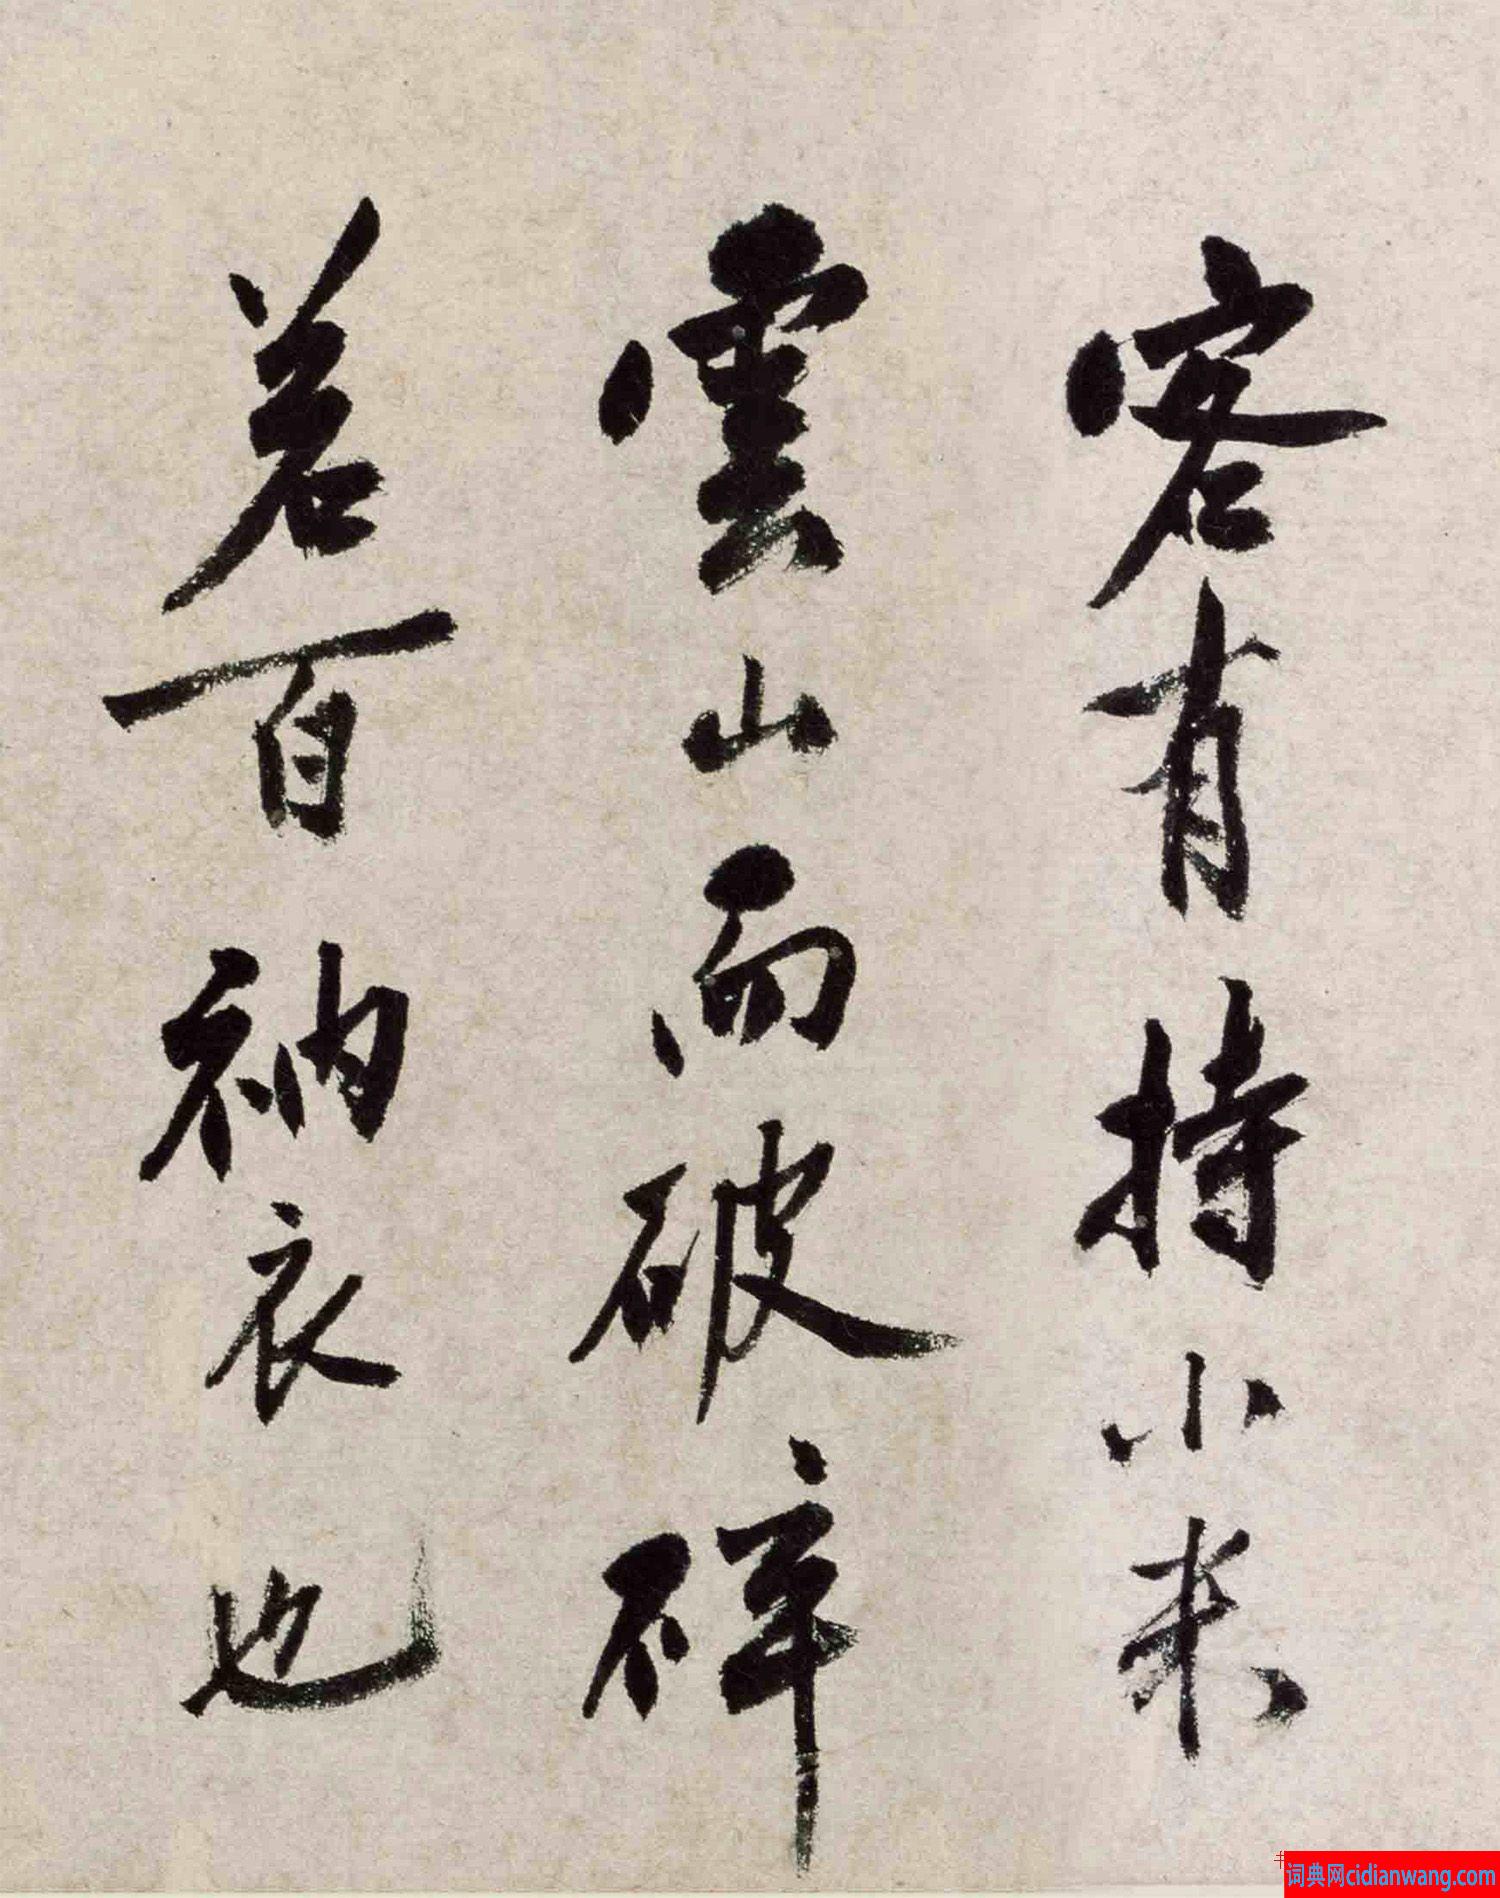 客有持小米
雲山而破碎
若百衲衣也
词典网cidianwang.com